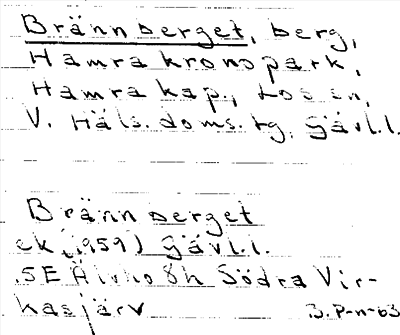 Brännberget, berg,
Hamra kronopark,
Hamra kap., Los sn,
V. Häls. doms. tg, Gävl.l.
Brännberget
ek. (1959) Gävl.l.
SE Älvho 8h Södra Vir-
kasjärv 3. P-n-63